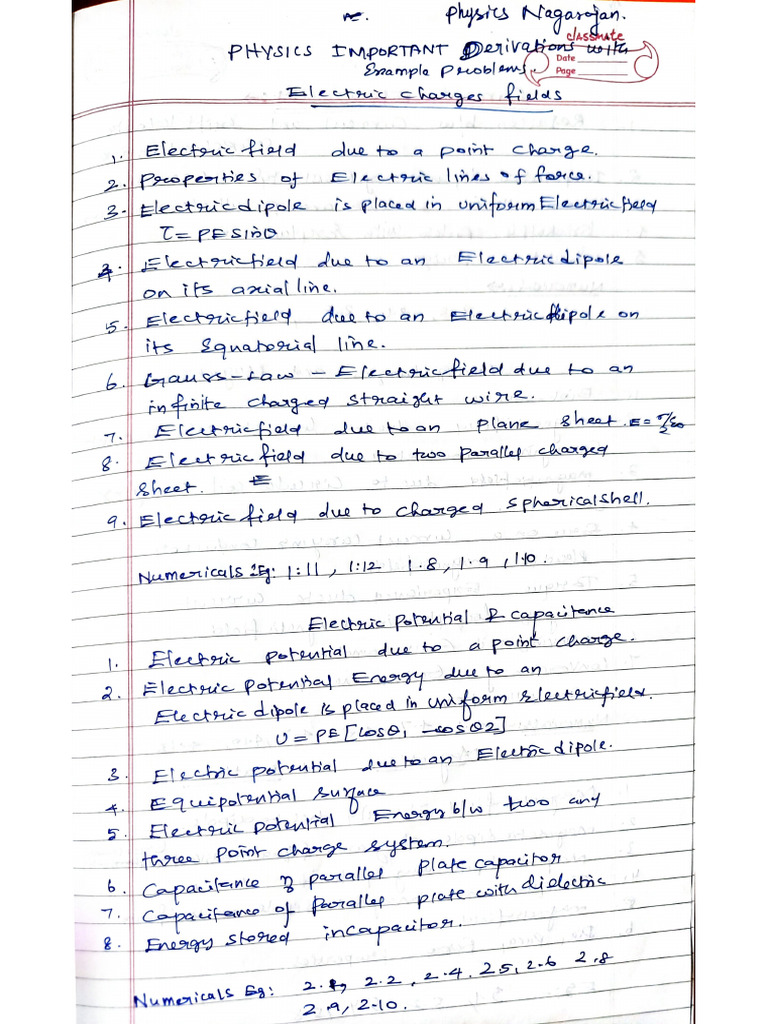 Physics Nagarajan.
classmate
PHYSICS IMPORTANT Derivations with
Date
Example Problems.
Page
Electric charges fields
1. Electric field due to a point charge.
2. Properties of Electric lines of force.
3. Electric dipole is placed in uniform Electric field
τ = PE sinθ
4. Electric field due to an Electric dipole
on its axial line.
5. Electric field due to an Electric dipole on
its Equatorial line.
6. Gauss-Law – Electric field due to an
infinite charged straight wire.
7. Electric field due to an plane sheet. E = σ/2ε0
8. Electric field due to two parallel charged
sheet. E
9. Electric field due to charged spherical shell.
Numericals: Eg: 1:11, 1:12 1.8, 1.9, 1.10.
Electric Potential & capacitence
1. Electric potential due to a point charge.
2. Electric potential Energy due to an
Electric dipole is placed in uniform Electric field.
U = PE [cosθ1 - cosθ2]
3. Electric potential due to an Electric dipole.
4. Equipotential surface
5. Electric potential Energy b/w two any
three point charge system.
6. Capacitence of parallel plate capacitor
7. Capacitance of Parallel plate with dielectric
8. Energy stored in capacitor.
Numericals Eg: 2.1, 2.2, 2.4, 2.5, 2.6 2.8
2.9, 2.10.